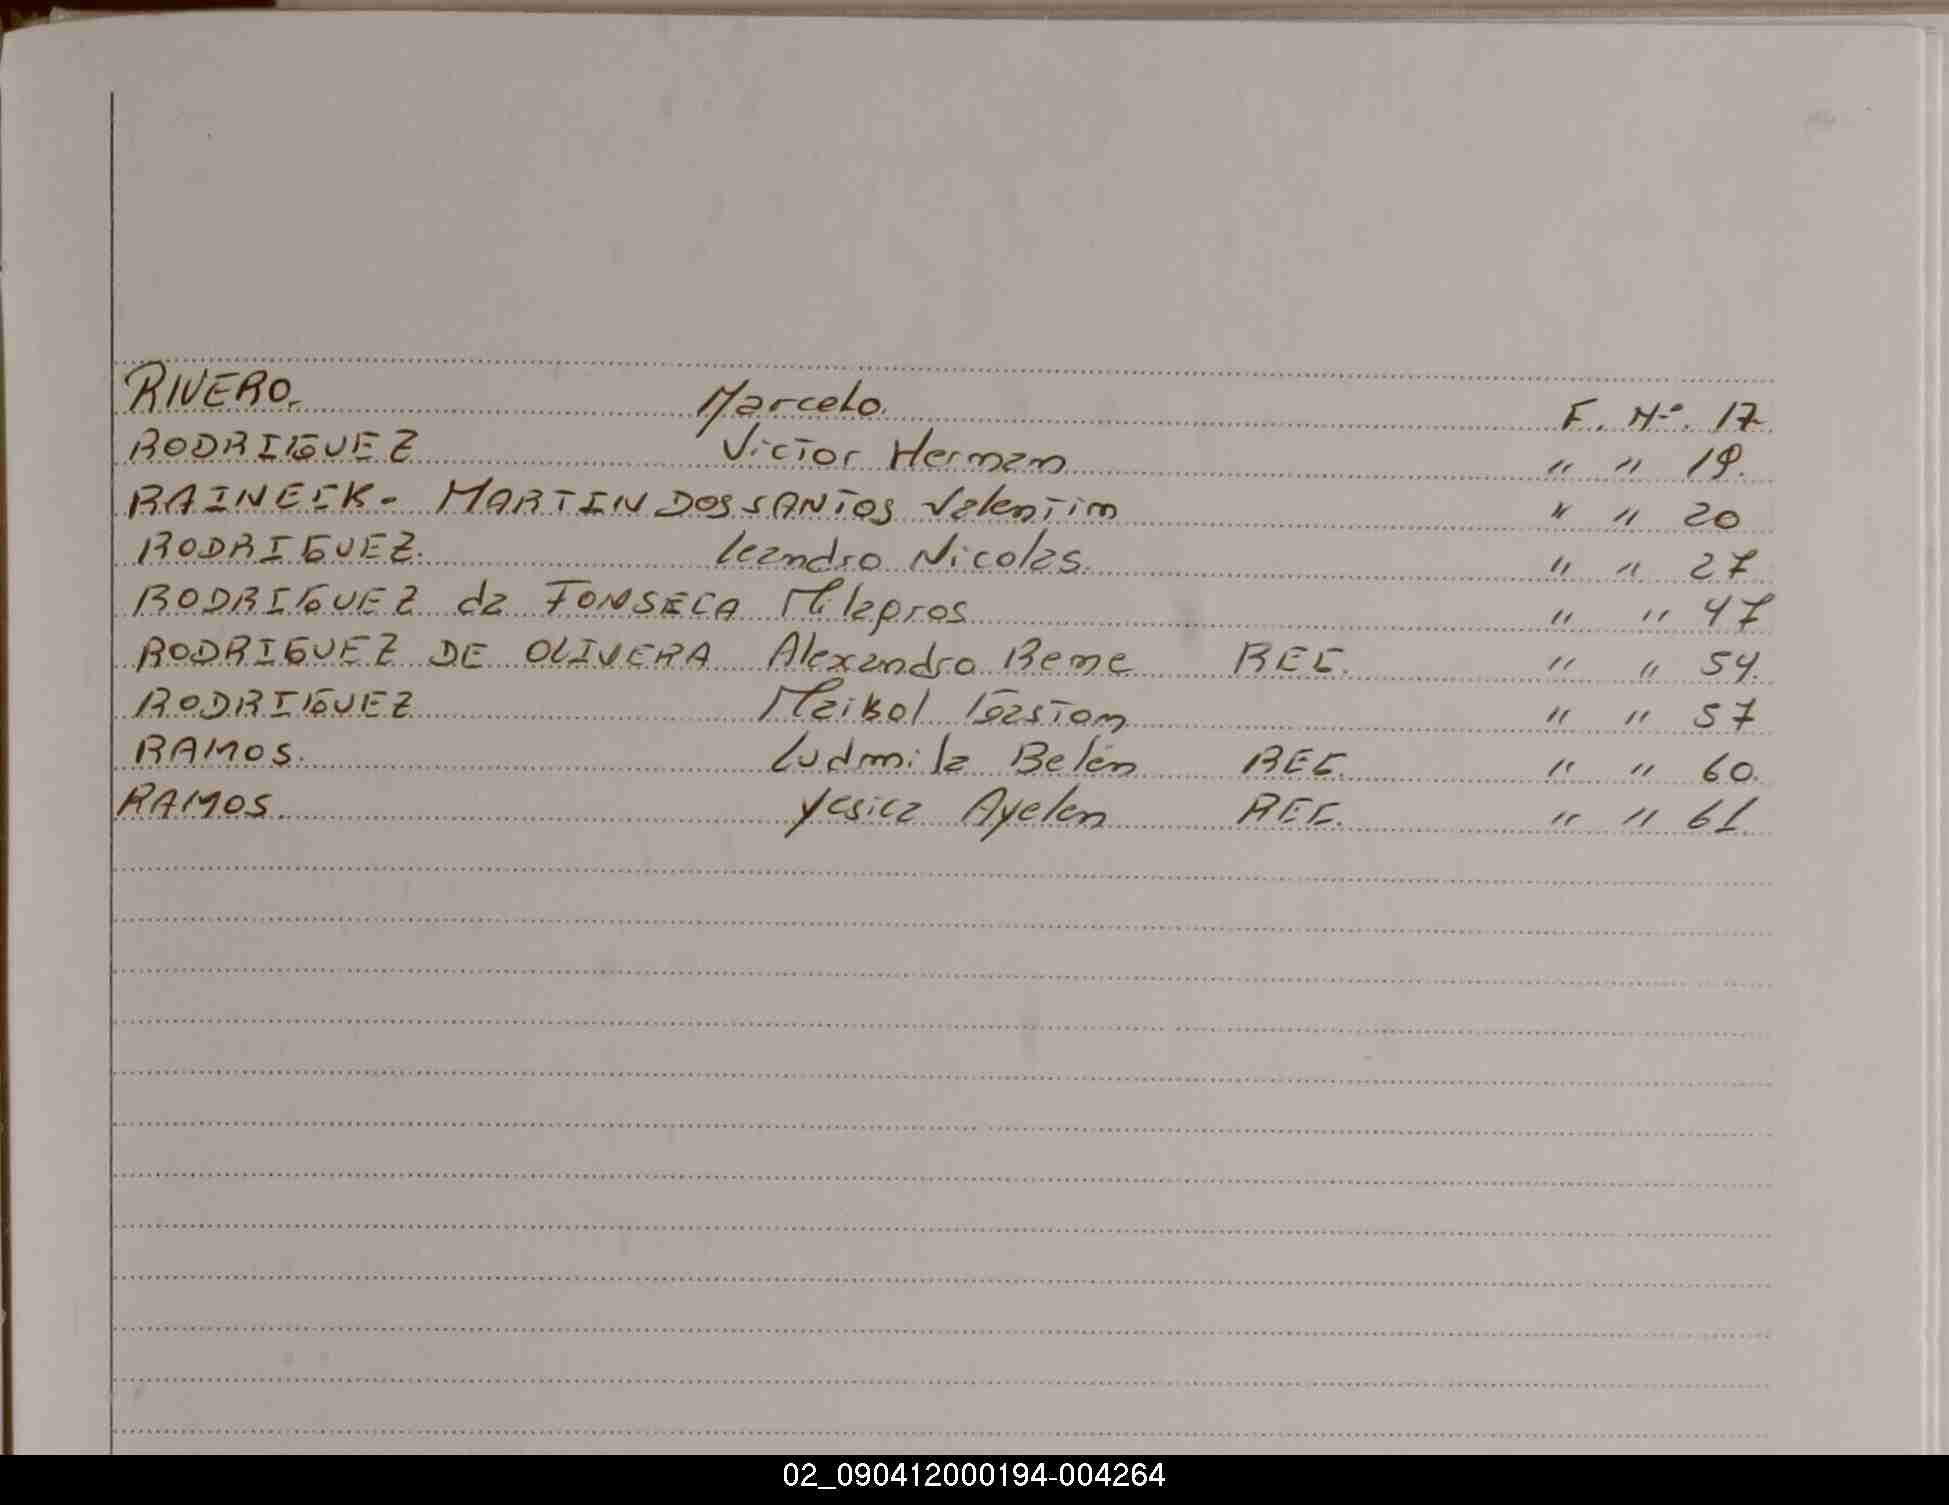 RIVERO. Marcelo. F. Nº. 17
RODRIGUEZ Victor Hernan " " 19.
RAINECK - MARTIN DOS SANTOS Valentin " " 20
RODRIGUEZ. Leandro Nicolas. " " 27
RODRIGUEZ da FONSECA Milagros " " 47
RODRIGUEZ DE OLIVERA Alexandro Rene REC. " " 54.
RODRIGUEZ Maikol Gaston " " 57
RAMOS. Ludmila Belén REC. " " 60.
RAMOS Yesica Ayelen REC. " " 61.
02_090412000194-004264